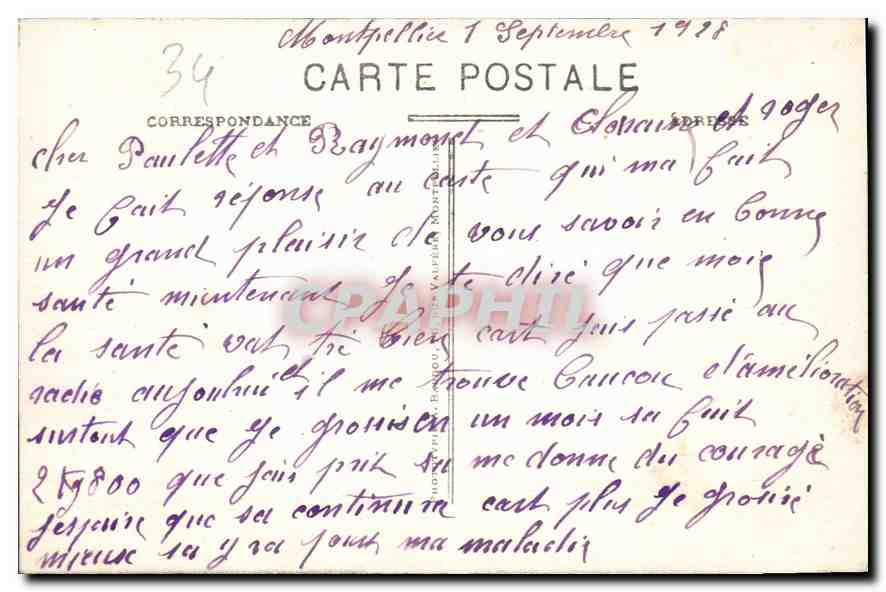 Montpellier 1 Septembre 1928
34
CARTE POSTALE
CORRESPONDANCE
ADRESSE
cher Paulette et Raymond et et roger
Je fait réponse au carte qui ma fait
un grand plaisir de vous savoir en bonne
santé mintenant Je te diré que moi
la santé vat tré bien cart jais passé au
radio aujoulhui et il me trouve baucou d'amélioration
surtout que Je grossis en un mois sa fait
2 Kg 800 que jais prit sa me donne du courage
Jespaire que sa continura cart plus Je grossiré
mieuse sa y ra pour ma maladie
PHOTOTYPIE VALFÈRE, MONTPELLIER
CPAPHIL